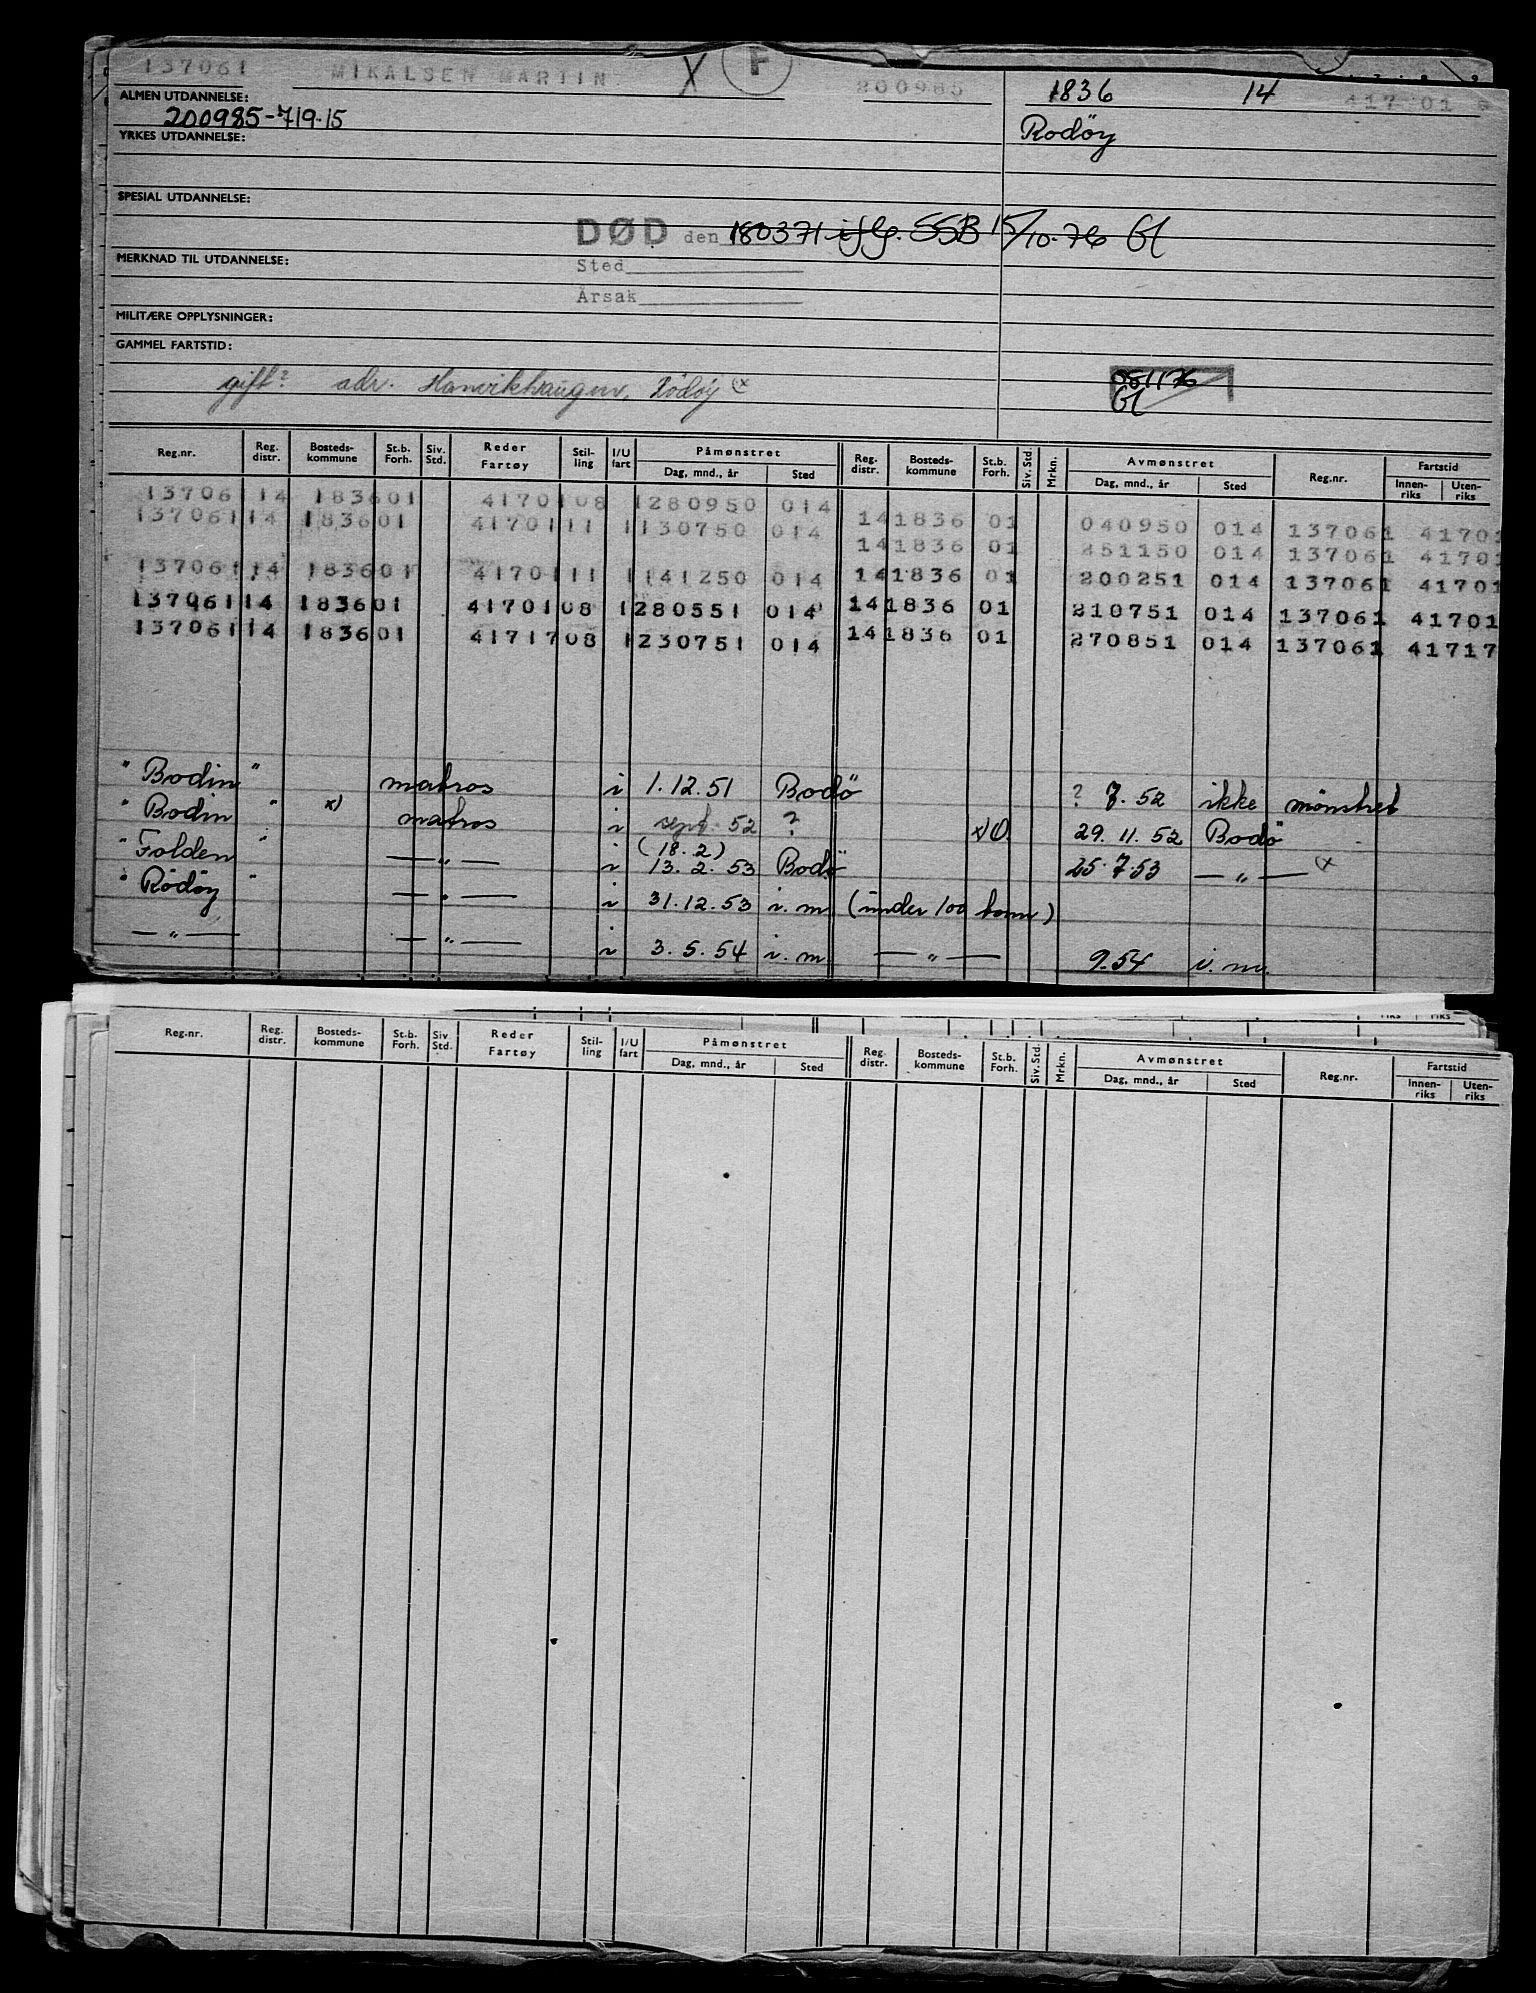 137061 MIKALSEN MARTIN X F 200985 1836 14 417 01
ALMEN UTDANNELSE:
200985-719.15 Rodöy
YRKES UTDANNELSE:
SPESIAL UTDANNELSE:
DØD den 180371 iflg. SSB 15/10-76 Gl
MERKNAD TIL UTDANNELSE: Sted
Årsak
MILITÆRE OPPLYSNINGER:
GAMMEL FARTSTID:
gift? adr. Rödöy (x 051176
Gl
Reg.nr. Reg. distr. Bosteds-kommune St.b. Forh. Siv. Std. Reder Fartøy Stil-ling I/U fart Påmønstret Dag, mnd., år Sted Reg. distr. Bosteds-kommune St.b. Forh. Siv. Std. Mrkn. Avmønstret Dag, mnd., år Sted Reg.nr. Fartstid Innen-riks Uten-riks
13706114 183601 4170108 1280950 014
13706114 183601 4170111 1130750 014 141836 01 040950 014 137061 41701
141836 01 251150 014 137061 41701
13706114 183601 4170111 1141250 014 141836 01 200251 014 137061 41701
13706114 183601 4170108 1280551 014 141836 01 210751 014 137061 41701
13706114 183601 4171708 1230751 014 141836 01 270851 014 137061 41717
"Bodin" matros i 1.12.51 Bodö ? 7.52 ikke mönstret
"Bodin" x) matros i sept. 52 ? x) O 29.11.52 Bodö
"Folden" — " — i (18.2) 13.2.53 Bodö 25.7.53 — " — (x
"Rödöy" — " — i 31.12.53 i.m. (under 100 tonn)
— " — — " — i 3.5.54 i.m. — " — 9.54 i.m.
Reg.nr. Reg. distr. Bosteds-kommune St.b. Forh. Siv. Std. Reder Fartøy Stil-ling I/U fart Påmønstret Dag, mnd., år Sted Reg. distr. Bosteds-kommune St.b. Forh. Siv. Std. Mrkn. Avmønstret Dag, mnd., år Sted Reg.nr. Fartstid Innen-riks Uten-riks